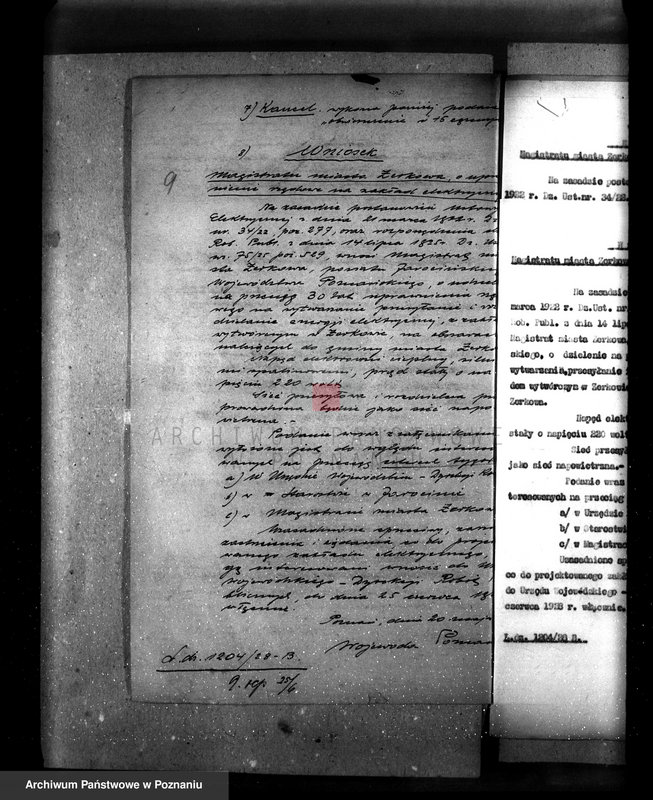 7) Kancel. wykona poniżej podane
obwieszczenie w 15 egzempl
8) Wniosek
9
Magistratu miasta Żerkowa, o
rządowe na zakład elektryczny
Na zasadzie postanowień Ustawy
Elektrycznej z dnia 21 marca 1922 r. Dz.
nr. 34/22, poz. 277, oraz rozporządzenia
Rob. Publ. z dnia 14 lipca 1925 r. Dz. Us
nr. 75/25 poz. 529, wnosi Magistrat
sta Żerkowa, powiatu Jarocińskiego
Województwa Poznańskiego, o
na przeciąg 30 lat uprawnienia
wego na wytwarzanie przesyłanie i
dzielanie energji elektrycznej, z
wytwórczym w Żerkowie, na obszarze
należącym do gminy miasta Żerk
Napęd elektrowni cieplny, silni
mi spalinowemi, prąd stały o na
pięciu 220 volt.
Sieć przesyłowa i rozdzielcza
prowadzona będzie jako sieć napo
wietrzna.-
Podanie wraz z
wyłożone jest do wglądu interes
wanych na przeciąg
a) w Urzędzie Wojewódzkim - Dyrekcji Ro
b) w Starostwie w Jarocinie
c) w Magistracie miasta Żerkow
Uzasadnione sprzeciwy,
i żądania, co do proje
towanego zakładu elektrycznego,
gą interesowani wnosić do U
Wojewódzkiego - Dyrekcji Robót
Publicznych, do dnia 25 czerwca 192
włącznie.
Poznań, dnia 20
Wojewoda Poznań
L.dz. 1204/28-B.
9. 25/6
Magistratu miasta Zerko
Na zasadzie posta
1922 r. Dz. Ust.nr. 34/22.
Magistratu miasta Zerkow
Na zasadzie
marca 1922 r. Dz.Ust. nr.
Rob. Publ. z dnia 14 lip
Magistrat miasta Zerkowa
skiego, o dzielenie na
wytwarzania,przesyłanie i
dem wytwórczym w Zerkowie
Zerkowa.
Napęd elekt
stały o napięciu 220 wolt
Sieć przesył
jako sieć napowietrzna.-
Podanie wraz
teresowanych na przeciąg
a/ w Urzędzie
b/ w Starostwi
c/ w Magistrac
Uzasadnione sp
co do projektowanego zakł
do Urzędu Wojewódzkiego -
czerwca 1928 r. włącznie.
L.dz. 1204/28 B.
ARCHIWUM PAŃSTWOWE
Archiwum Państwowe w Poznaniu